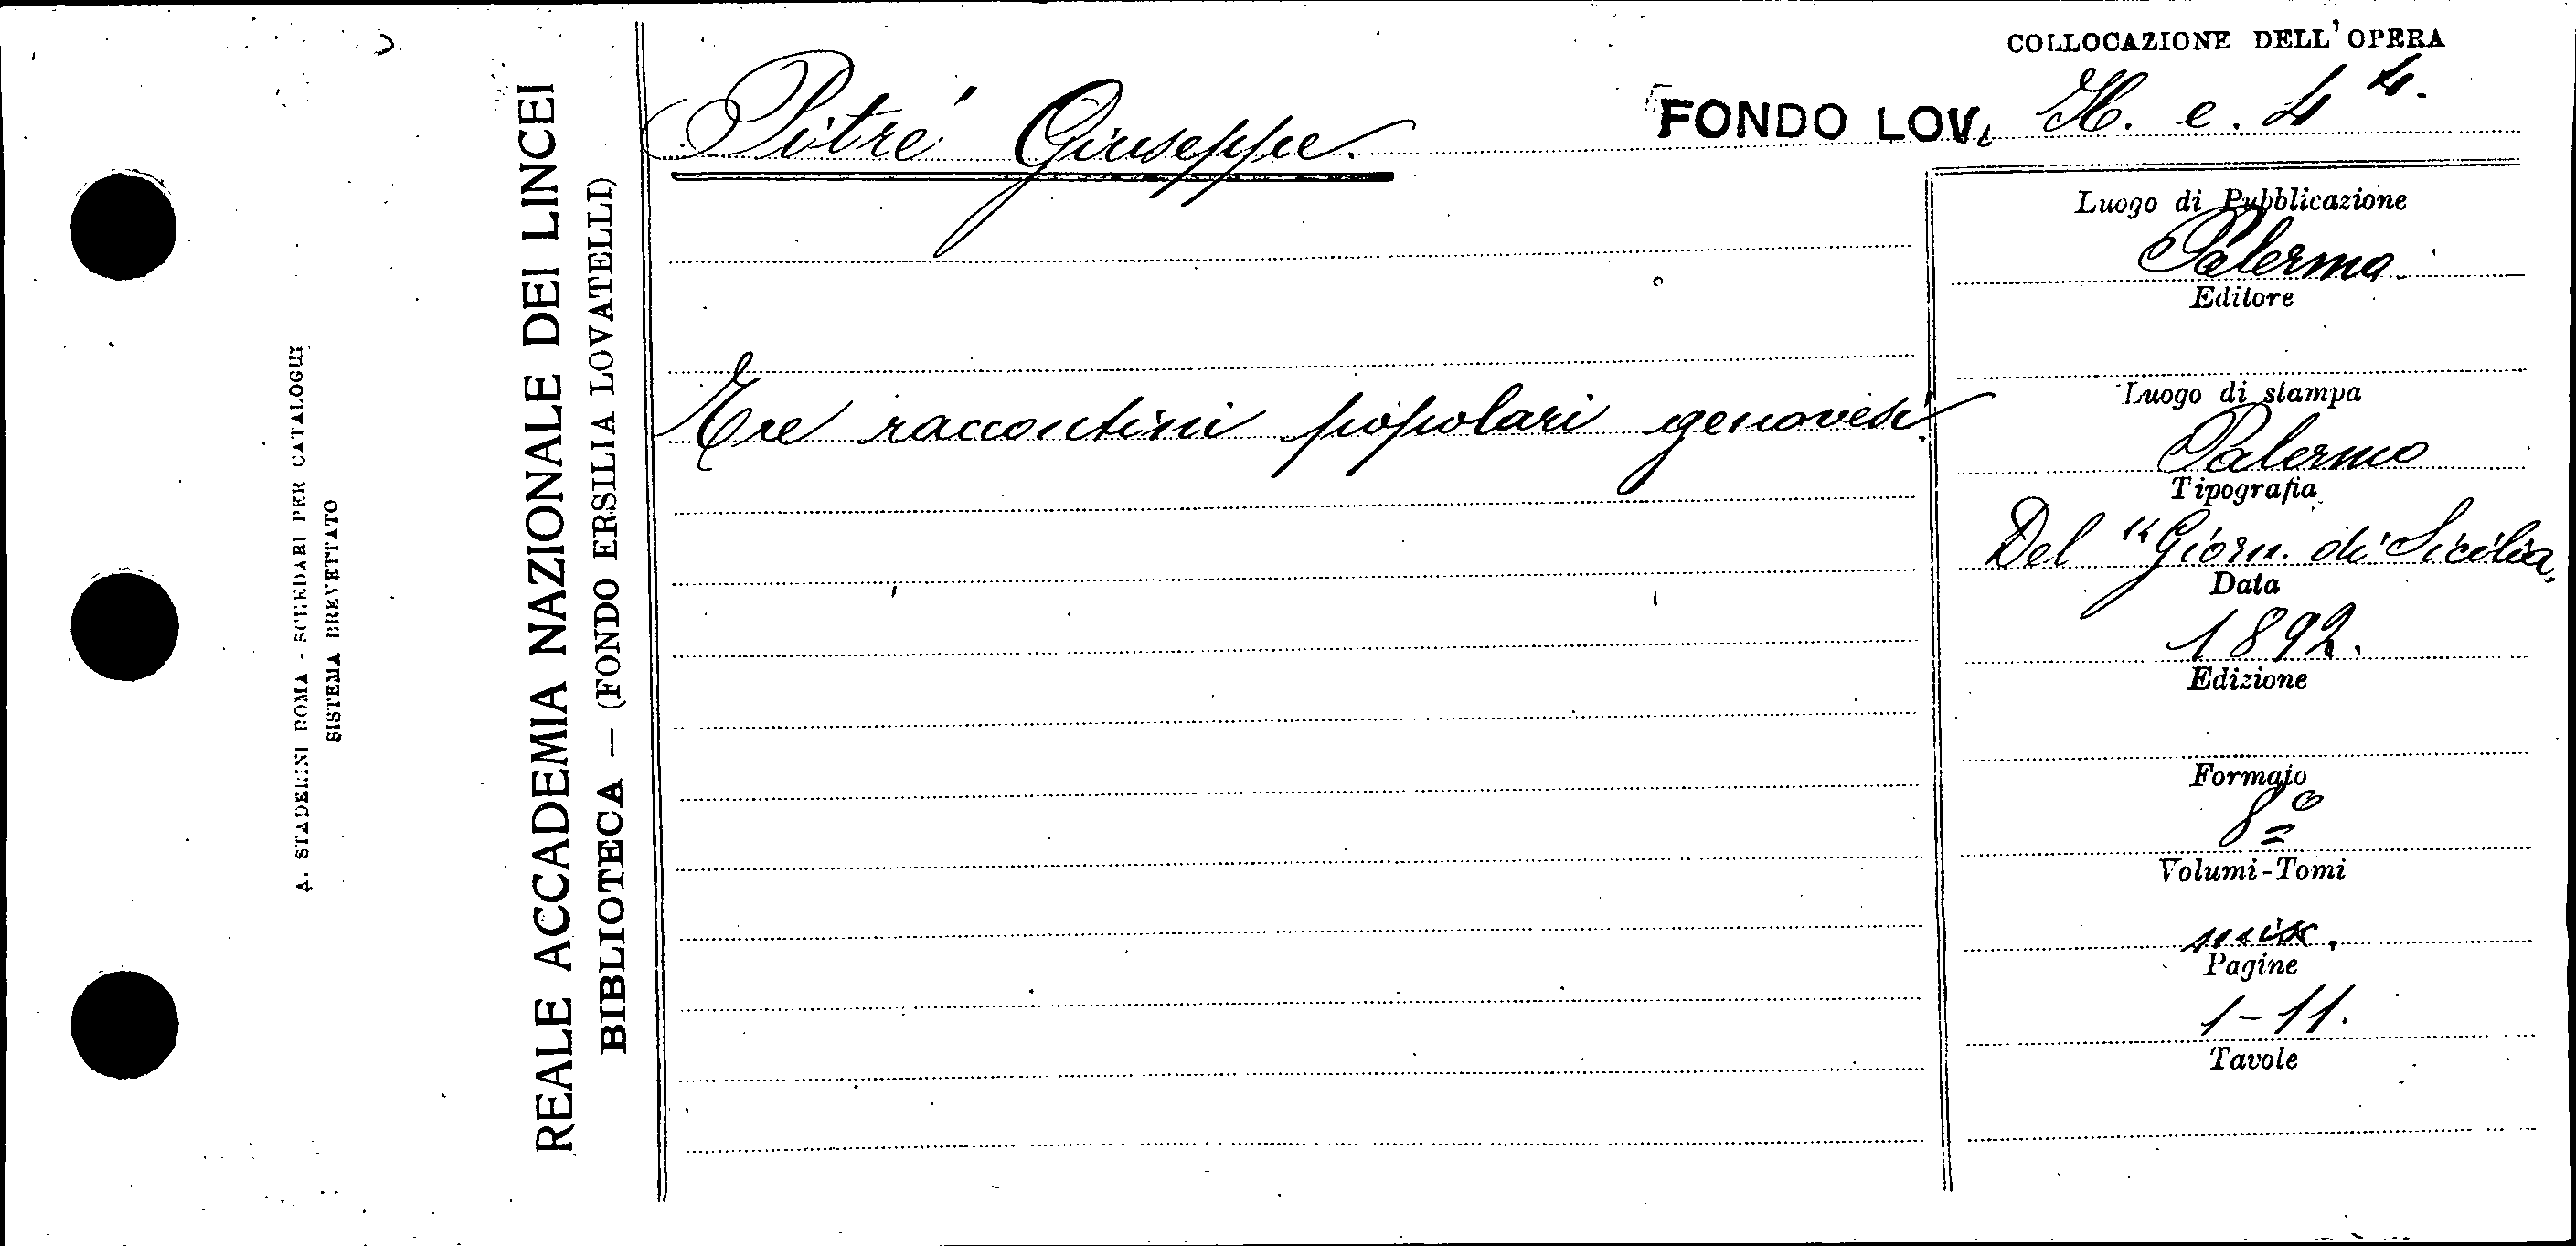 COLLOCAZIONE DELL'OPERA
Pitrè Giuseppe.
FONDO LOV. H. e. 4 4.
Tre raccontini popolari genovesi.
Luogo di Pubblicazione
Palermo.
Editore
Luogo di stampa
Palermo
Tipografia
Del "Giorn. di Sicilia„
Data
1892.
Edizione
Formato
8º
Volumi-Tomi
Pagine
1-11.
Tavole
REALE ACCADEMIA NAZIONALE DEI LINCEI
BIBLIOTECA — (FONDO ERSILIA LOVATELLI)
A. STADERINI ROMA - SCHEDARI PER CATALOGHI
SISTEMA BREVETTATO